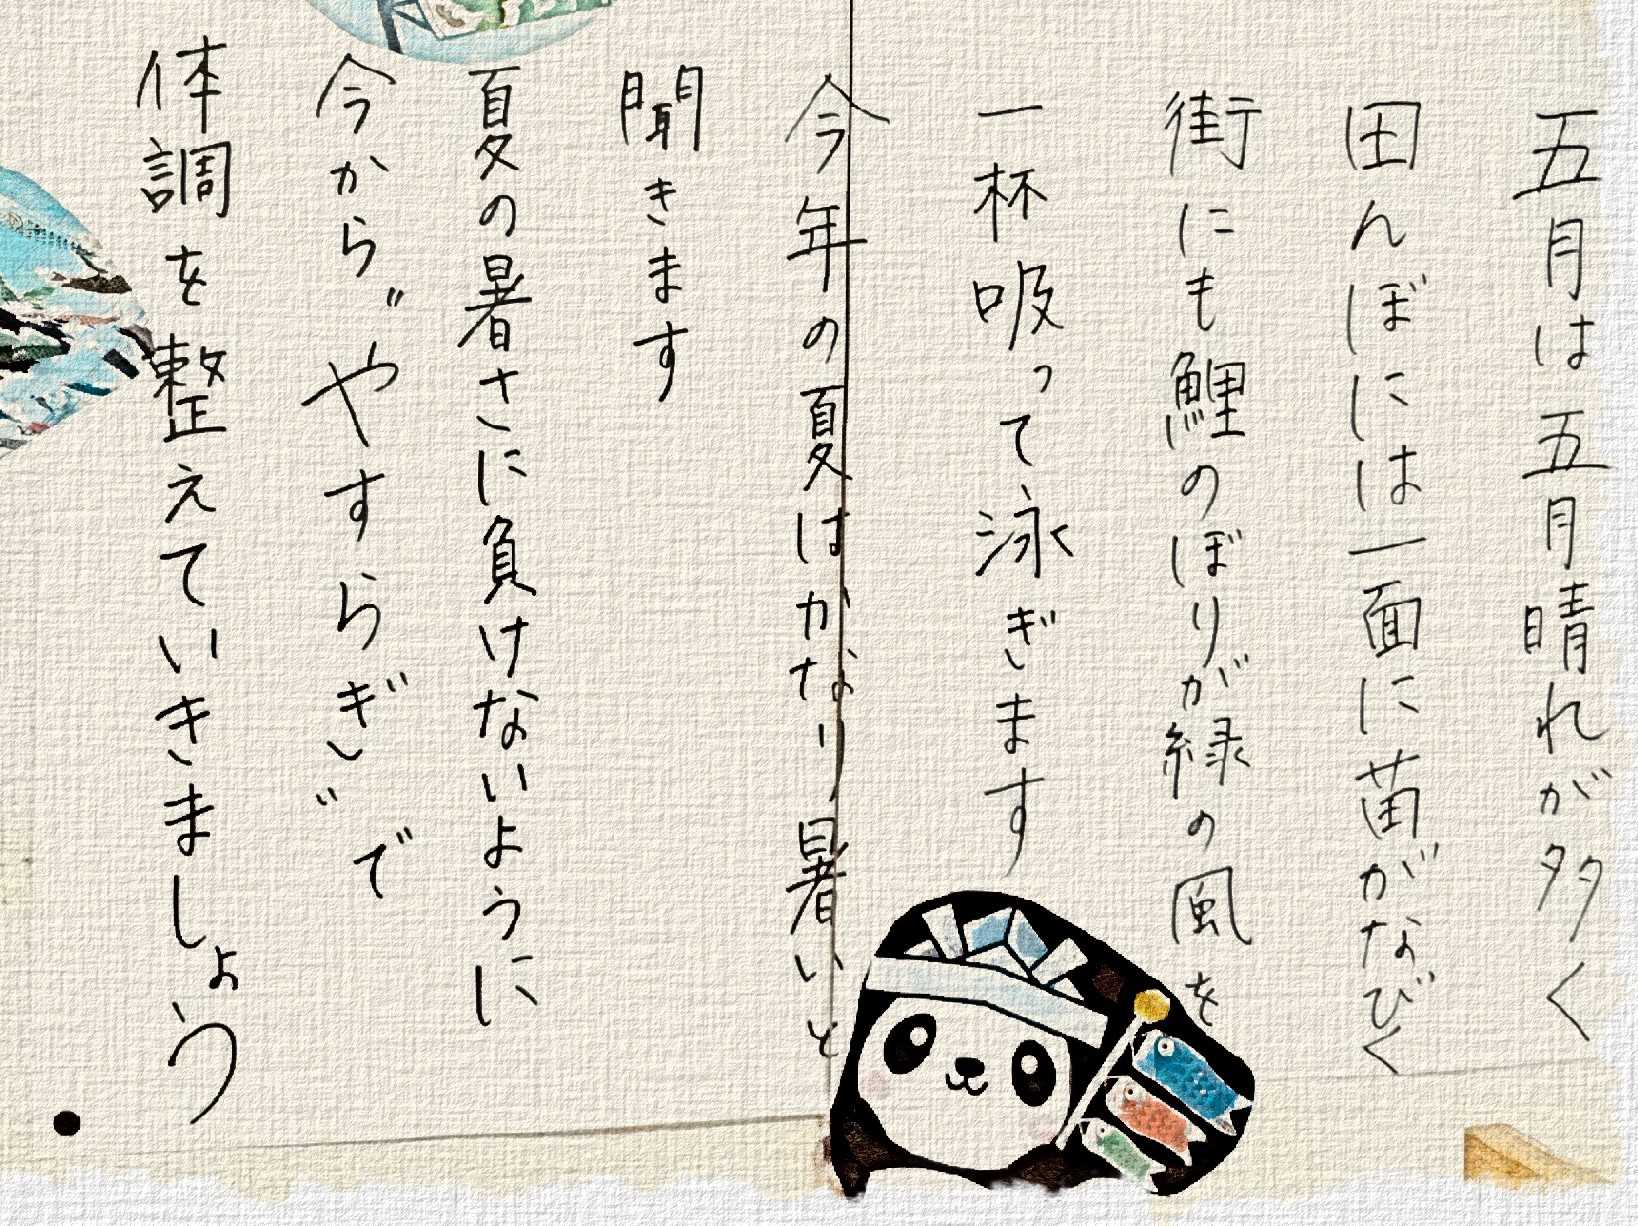 五月は五月晴れが多く
田んぼには一面に苗がなびく
街にも鯉のぼりが緑の風を
一杯吸って泳ぎます
今年の夏はかなり暑いと
聞きます
夏の暑さに負けないように
今から〝やすらぎ〟で
体調を整えていきましょう